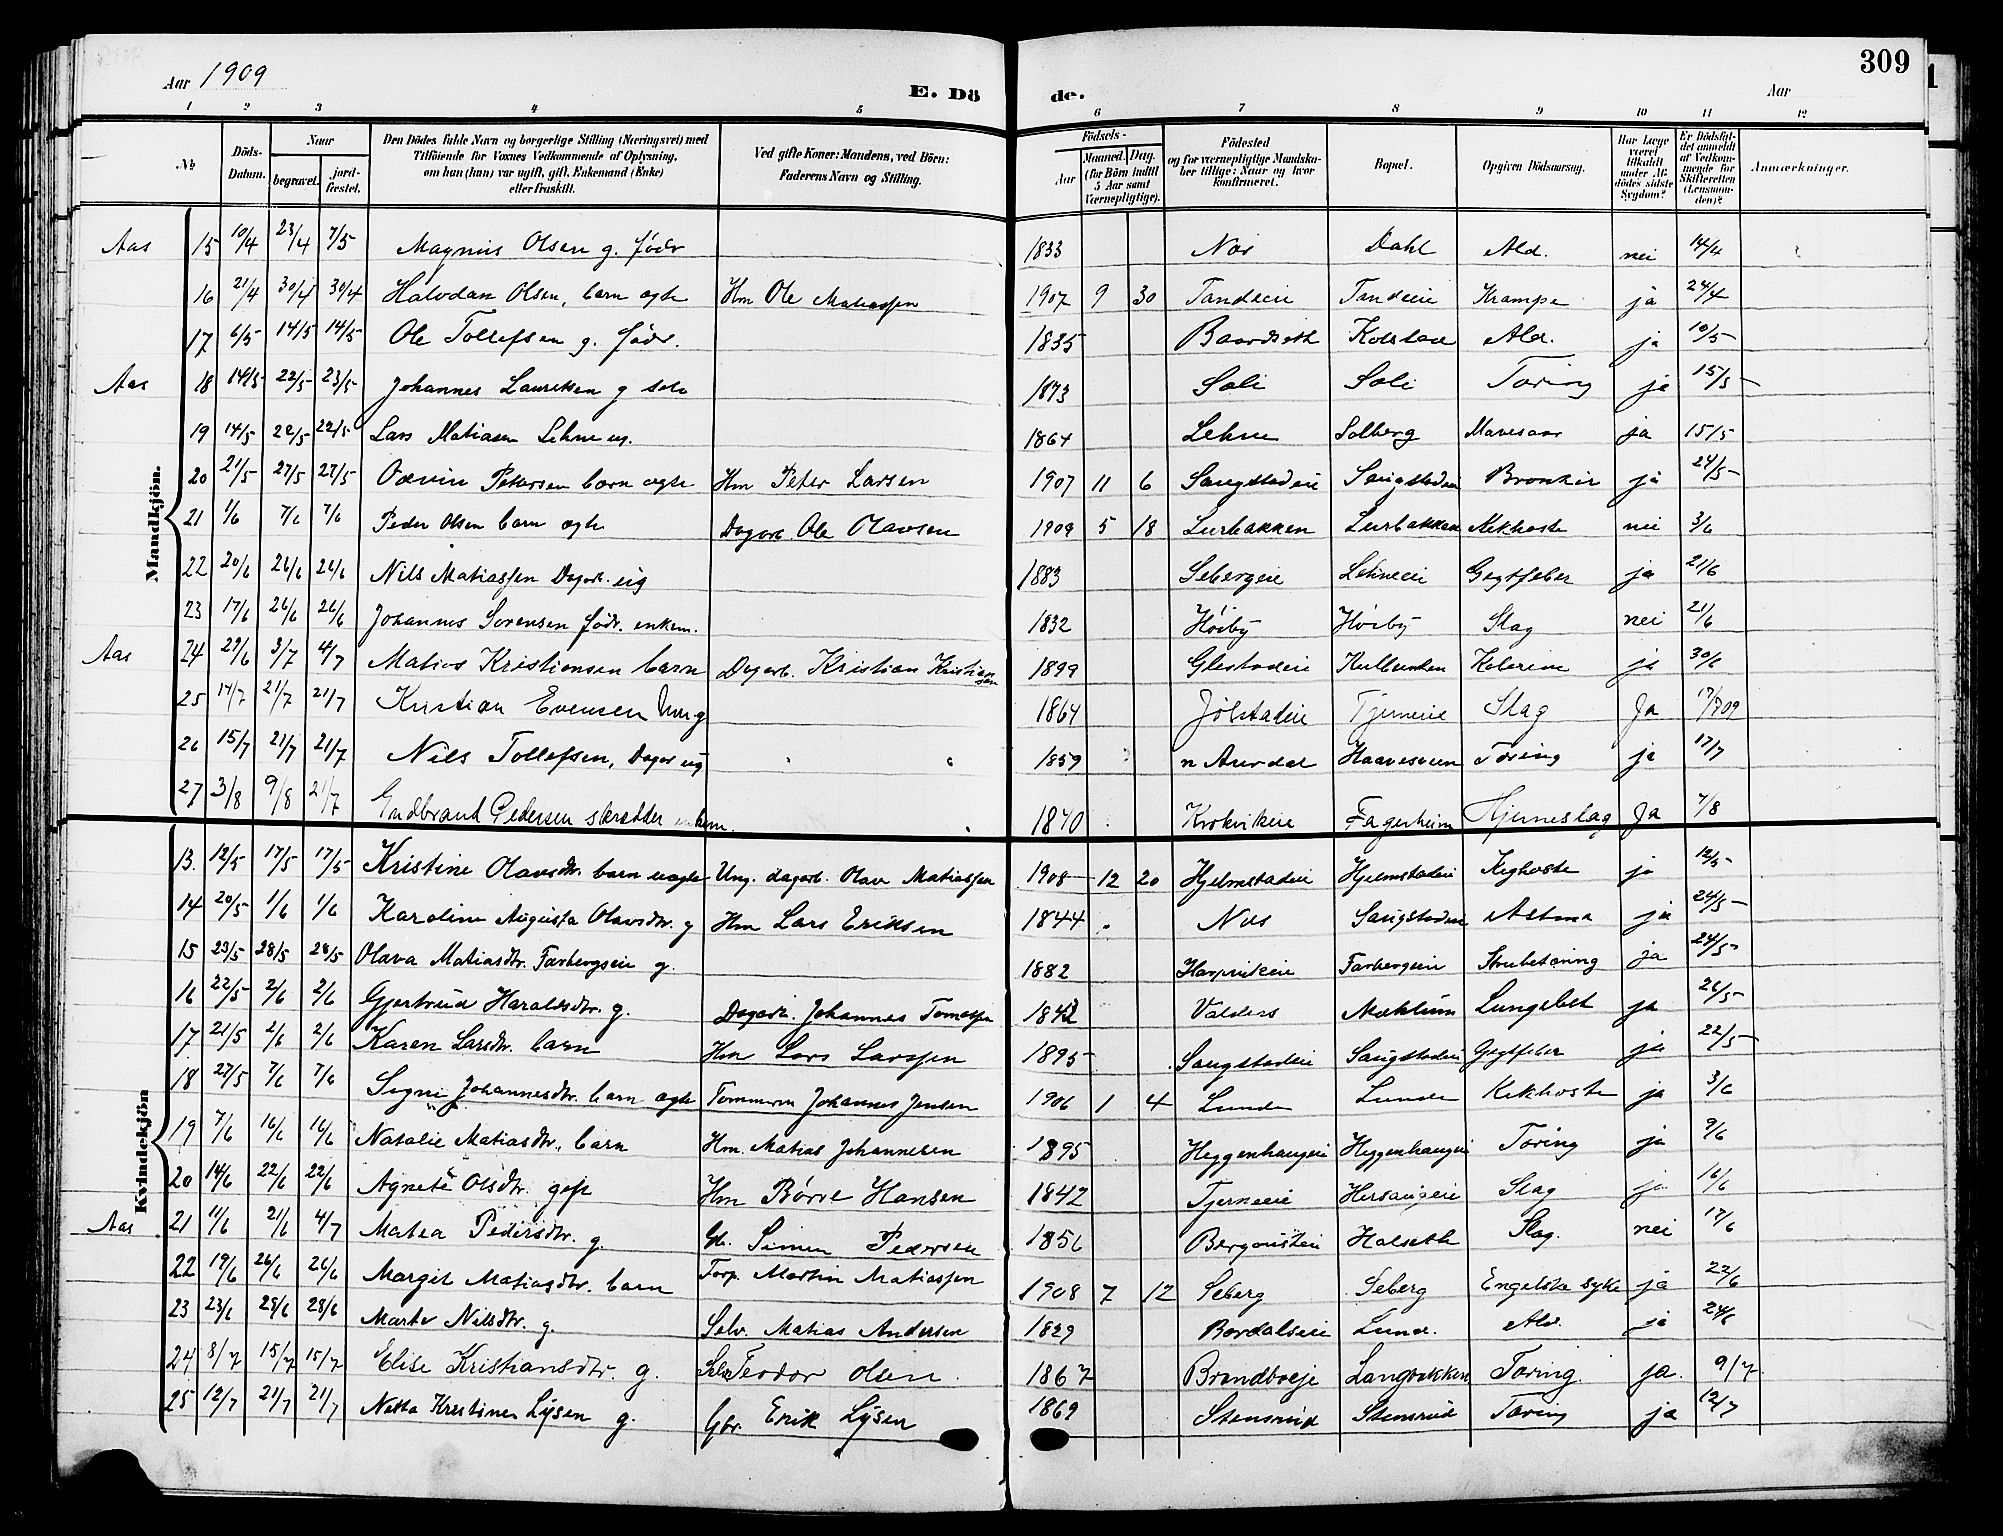 309
Aar 1909
E. Dö de.
Aar
1 2 3 4 5 6 7 8 9 10 11 12
No. Döds-Datum. Naar begravet. jordfæstet. Den Dödes fulde Navn og borgerlige Stilling (Næringsvei) med Tilföiende for Voxnes Vedkommende af Oplysning, om han (hun) var ugift, gift, Enkemand (Enke) eller fraskilt. Ved gifte Koner: Mandens, ved Börn: Faderens Navn og Stilling. Födsels- Aar Maaned. Dag. (for Börn indtil 5 Aar samt Værnepligtige). Födested og for værnepligtige Mandskaber tillige: Naar og hvor konfirmeret. Bopæl. Opgiven Dödsaarsag. Har Læge været tilkaldt under Afdödes sidste Sygdom? Er Dödsfaldet anmeldt af Vedkommende for Skifteretten (Lensmanden)? Anmærkninger.
Mandkjön.
Aas 15 10/4 23/4 7/5 Magnus Olsen g. födr 1833 Næs Dahl Ald. nei 14/4
16 21/4 30/4 30/4 Halvdan Olsen, barn ægte Hm Ole Matiassen 1907 9 30 Tandeeie Tandeeie Krampe ja 24/4
17 6/5 14/5 14/5 Ole Tollefsen g. födr. 1835 Baardseth Kolstad Ald. ja 10/5
Aas 18 14/5 22/5 23/5 Johannes Lauritsen g selv 1873 Soli Soli Tæring ja 15/5
19 14/5 22/5 22/5 Lars Matiasen Lehne ug. 1864 Lehne Solberg Mavesaar ja 15/5
20 21/5 27/5 27/5 Petersen barn ægte Hm Peter Larsen 1907 11 6 Saugstadeie Saugstadeie ja 24/5
21 1/6 7/6 7/6 Peder Olsen barn ægte Dagarb. Ole Olavsen 1909 5 18 Lurbakken Lurbakken Kikhoste nei 3/6
22 20/6 26/6 26/6 Nils Matiassen Dagarb. ug 1883 Sebergeie Lehneeie Gigtfeber ja 21/6
23 17/6 26/6 26/6 Johannes Sorensen födr. enkem. 1832 Höiby Höiby Slag nei 21/6
Aas 24 29/6 3/7 4/7 Matias Kristiansen barn Dagarb. Kristian Kristiansen 1899 Glestadeie ja 30/6
25 14/7 21/7 21/7 Kristian Evensen ug 1864 Jölstadeie Tjerneie Slag Ja 17/7 09
26 15/7 21/7 21/7 Nils Tollefsen, Dagar ug 1859 n Aurdal Haavesveen Tæring ja 17/7
27 3/8 9/8 21/7 Gudbrand Pedersen skrædder enkem. 1840 Krokvikeie Fagerheim Hjerneslag Ja 7/8
Kvindekjön
13. 12/5 17/5 17/5 Kristine Olavsdtr. barn uægte Ung. dagarb. Olav Matiassen 1908 12 20 Hjelmstadeie Hjelmstadeie Kighoste ja 12/5
14 20/5 1/6 1/6 Karoline Augusta Olavsdtr. g Hm Lars Eriksen 1844 Næs Saugstadeie Astma ja 24/5
15 23/5 28/5 28/5 Olava Matiasdtr. Farbergseie g. 1882 Harpvikeie Farbergeie Strubetæring ja 24/5
16 22/5 2/6 2/6 Gjertrud Haraldsdtr. g. Dagarb. Johannes Tomassen 1842 Valders Mæhlum ja 26/5
17 21/5 2/6 2/6 Karen Larsdtr. barn Hm Lars Larssen 1895 Saugstadeie Saugstadeie Gigtfeber ja 22/5
18 27/5 7/6 7/6 Signi Johannesdtr. barn ægte Tømmerm Johannes Jensen 1906 1 4 Lunde Lunde Kikhoste ja 3/6
19 7/6 16/6 16/6 Natalie Matiasdtr. barn Hm. Matias Johannesen 1895 Heggenhaugeie Heggenhaugeie Tæring ja 9/6
20 14/6 22/6 22/6 Agnete Olsdtr. gift Hm Børre Hansen 1842 Tjerneeie Hersaugeie Slag ja 16/6
Aas 21 11/6 21/6 4/7 Matea Pedersdtr. g. Simen Pedersen 1856 Halseth Slag. nei 17/6
22 19/6 26/6 26/6 Margit Matiasdtr. barn Forp. Martin Matiassen 1908 7 12 Seberg Seberg Engelske syke ja 22/6
23 23/6 28/6 28/6 Marte Nilsdtr. g. Selv. Matias Andersen 1829 Bordalseie Lund. Ald. ja 24/6
24 8/7 15/7 15/7 Elise Kristiansdtr. g. Selv Teodor Olsen. 1867 Brandboeje Langbakken Tæring. ja. 9/7
25 12/7 21/7 21/7 Netta Kristine Lysen g. Gbr. Erik Lysen 1869 Stensrud Stensrud Tæring ja 12/7